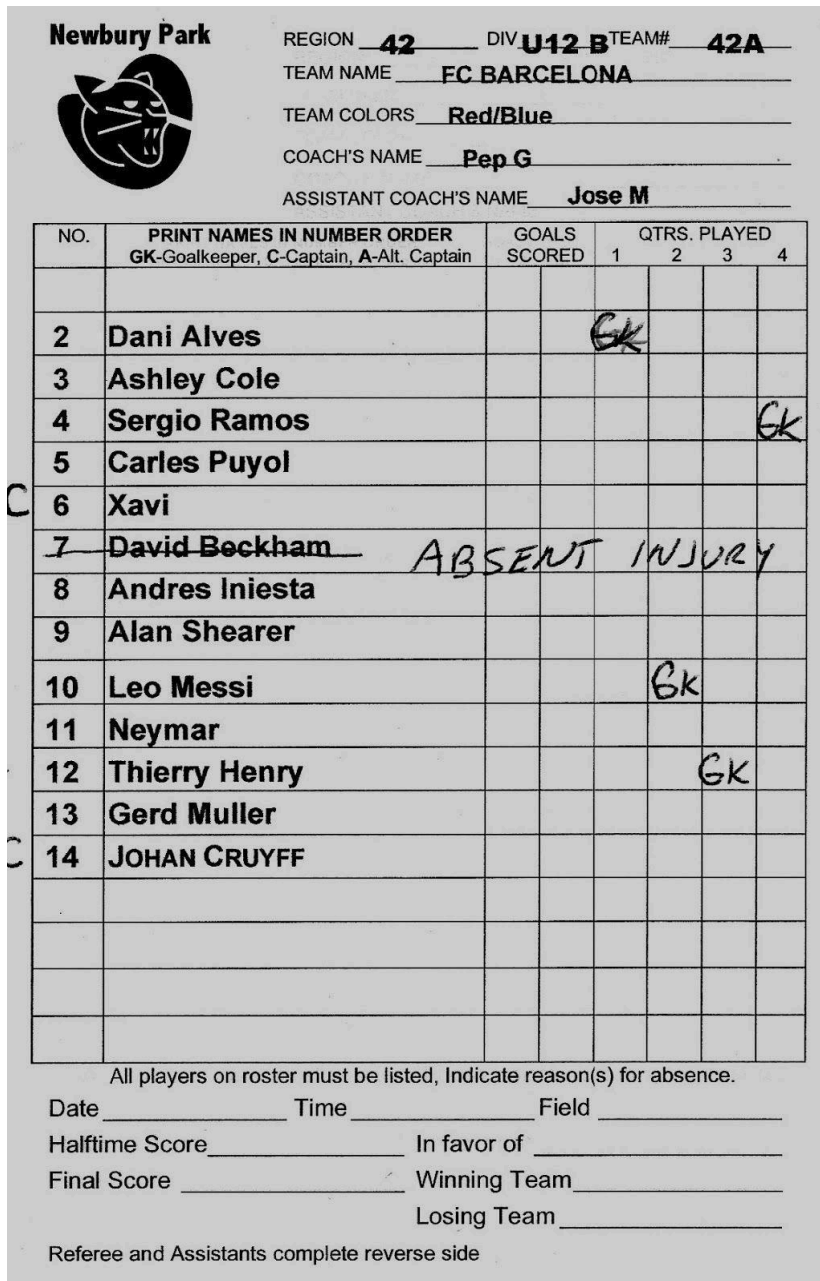 Newbury Park
REGION 42 DIV U12 B TEAM# 42A
TEAM NAME FC BARCELONA
TEAM COLORS Red/Blue
COACH'S NAME Pep G
ASSISTANT COACH'S NAME Jose M
NO. PRINT NAMES IN NUMBER ORDER GOALS QTRS. PLAYED
GK-Goalkeeper, C-Captain, A-Alt. Captain SCORED 1 2 3 4
2 Dani Alves GK
3 Ashley Cole
4 Sergio Ramos GK
5 Carles Puyol
C 6 Xavi
7 David Beckham ABSENT INJURY
8 Andres Iniesta
9 Alan Shearer
10 Leo Messi GK
11 Neymar
12 Thierry Henry GK
13 Gerd Muller
C 14 JOHAN CRUYFF
All players on roster must be listed, Indicate reason(s) for absence.
Date Time Field
Halftime Score In favor of
Final Score Winning Team
Losing Team
Referee and Assistants complete reverse side